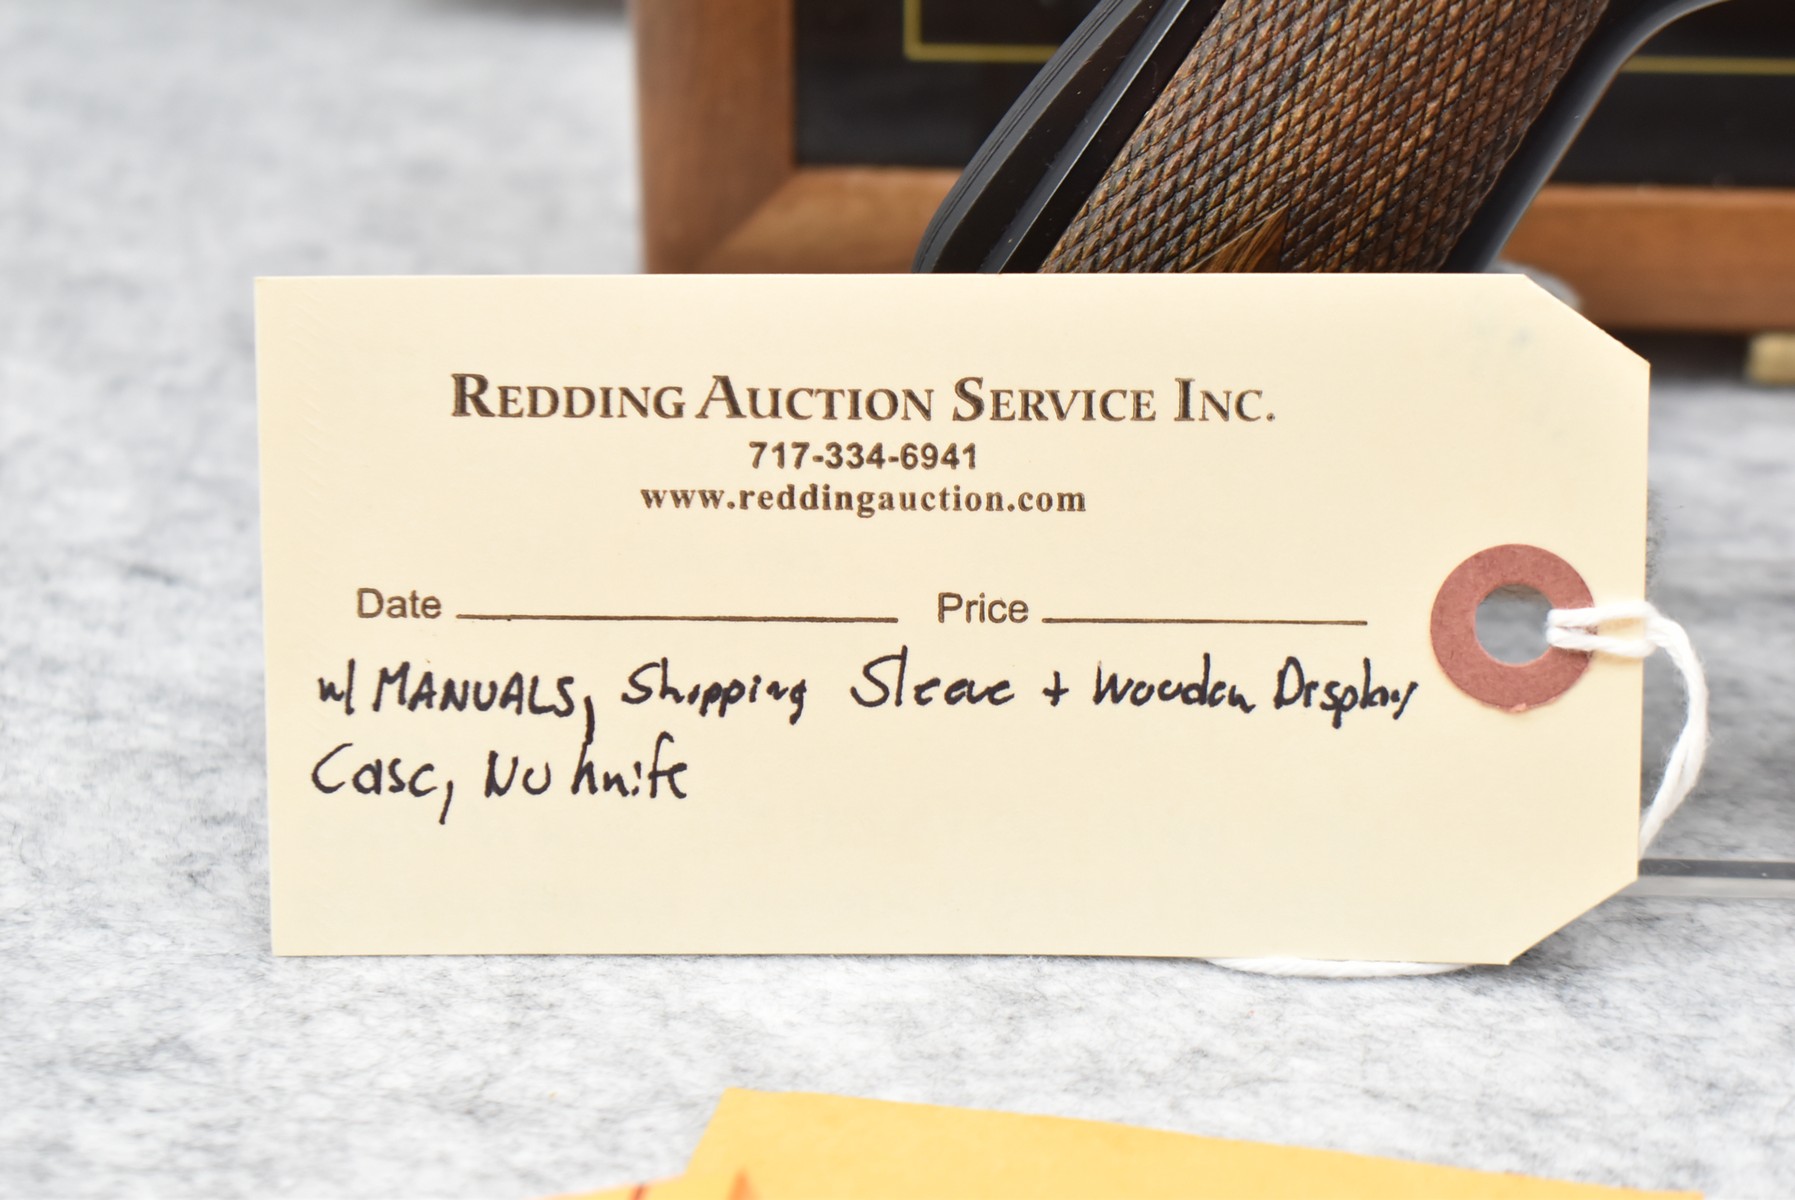 REDDING AUCTION SERVICE INC.
717-334-6941
www.reddingauction.com
Date Price
w/ MANUALS, Shipping Sleeve + Wooden Display
Case, No knife